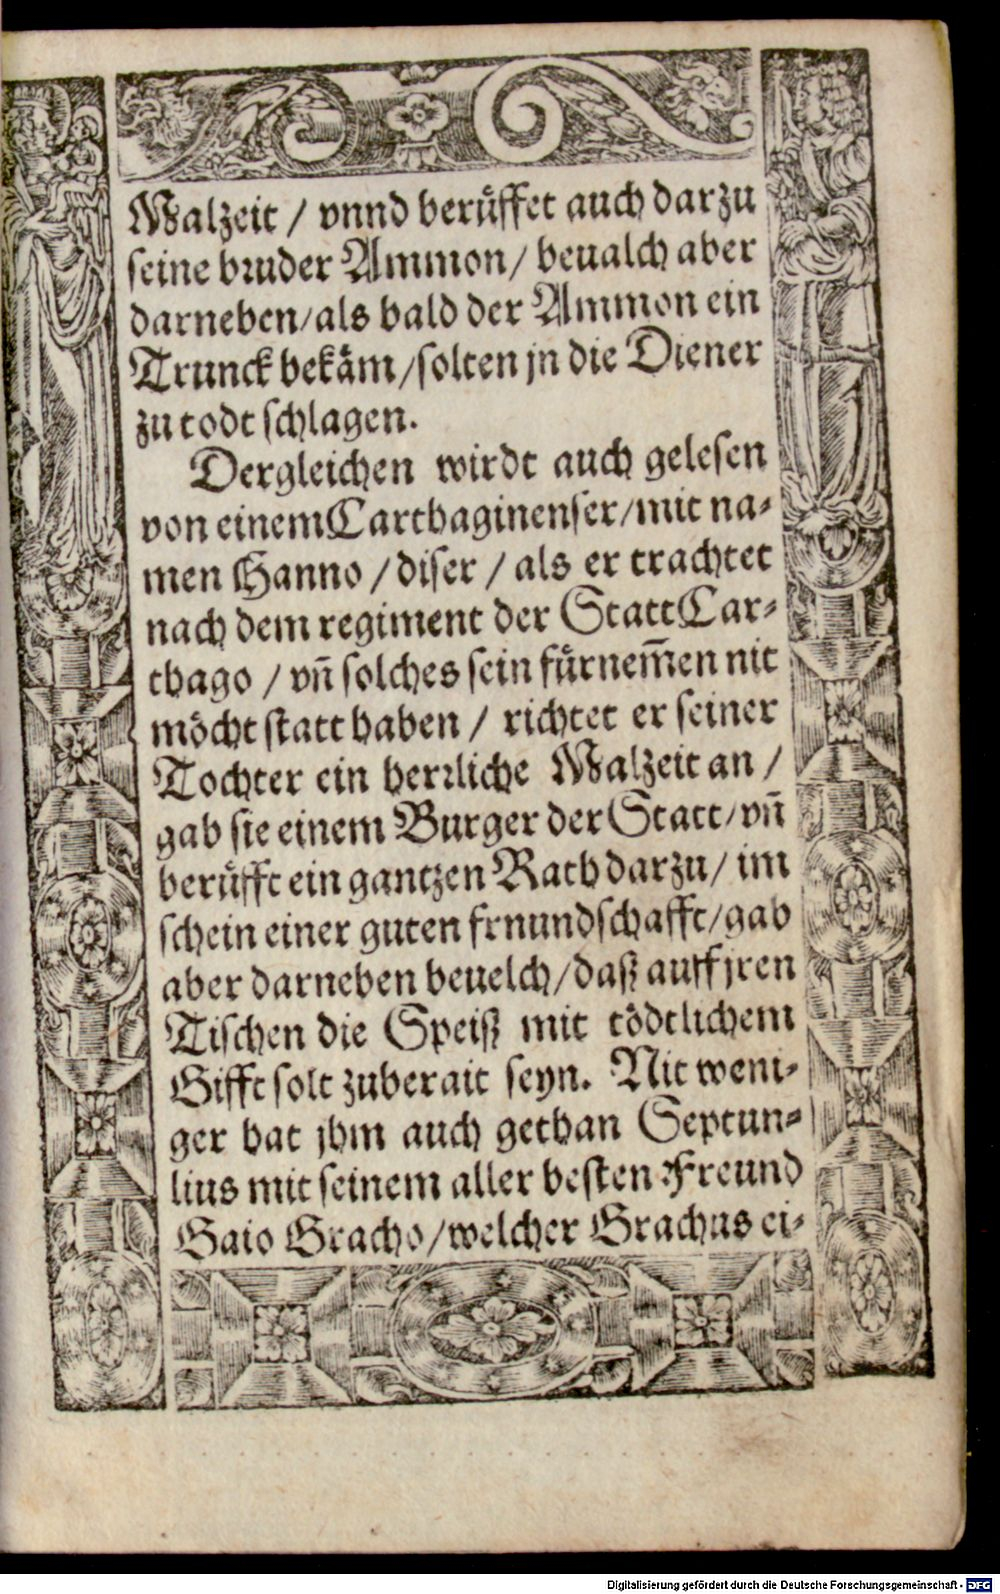 Malzeit / vnnd berüffet auch darzu
seine bruder Ammon / beualch aber
darneben / als bald der Ammon ein
Trunck bekäm / solten jn die Diener
zu todt schlagen.
Dergleichen wirdt auch gelesen
von einem Carthaginenser / mit na-
men Hanno / diser / als er trachtet
nach dem regiment der Statt Car-
thago / vñ solches sein fürnem̃en nit
möcht statt haben / richtet er seiner
Tochter ein herrliche Malzeit an /
gab sie einem Burger der Statt / vñ
berüfft ein gantzen Rath darzu / im
schein einer guten frnundschafft / gab
aber darneben beuelch / daß auff jren
Tischen die Speiß mit tödtlichem
Gifft solt zuberait seyn. Nit weni-
ger hat jhm auch gethan Septun-
lius mit seinem aller besten Freund
Gaio Gracho / welcher Grachus ei-
Digitalisierung gefördert durch die Deutsche Forschungsgemeinschaft - DFG